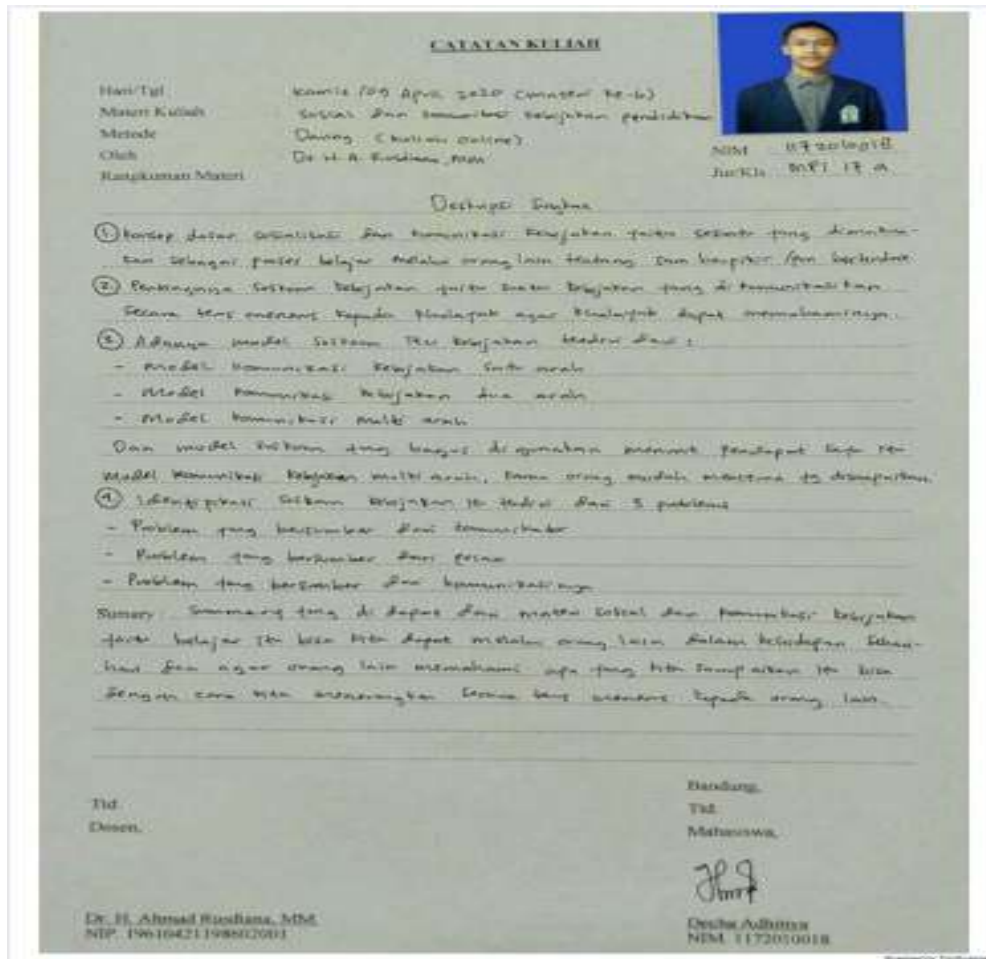 CATATAN KULIAH
Hari/Tgl Kamis /09 April 2020 (materi ke-6)
Materi Kuliah Soskal dan komunikasi kebijakan pendidikan
Metode Daring (kuliah online)
Oleh Dr. H. A. Rusdiana, MM
NIM
Rangkuman Materi
Jur/Kls MPI 17 A
Deskripsi Singkat
① konsep dasar sosialisasi dan komunikasi kebijakan yaitu sesuatu yang
kan sebagai proses belajar melalui orang lain tentang cara berpikir dan bertindak
② Pentingnya soskom kebijakan yaitu suatu kebijakan yang di komunikasikan
secara terus menerus kepada khalayak agar khalayak dapat memahaminya.
③ Adanya model soskom itu kebijakan terdiri dari :
- Model komunikasi kebijakan satu arah
- Model komunikasi kebijakan dua arah
- Model komunikasi multi arah
Dan model soskom yang bagus digunakan menurut pendapat saya itu
model komunikasi kebijakan multi arah, karna orang mudah menerima yg disampaikan.
④ soskom kebijakan itu terdiri dari 3 problems
- Problem yang bersumber dari komunikator
- Problem yang bersumber dari pesan
- Problem yang bersumber dari komunikasinya
Sumary : Summary yang di dapat dari materi soskal dan komunikasi kebijakan
yaitu belajar itu bisa kita dapat melalui orang lain dalam kehidupan sehari-
hari dan agar orang lain memahami apa yang kita sampaikan itu bisa
dengan cara kita menerangkan secara terus menerus kepada orang lain.
Bandung,
Ttd. Ttd.
Dosen, Mahasiswa,
Dr. H. Ahmad Rusdiana, MM. Decha Adhitya
NIP. 196104211986021001 NIM. 1172010018